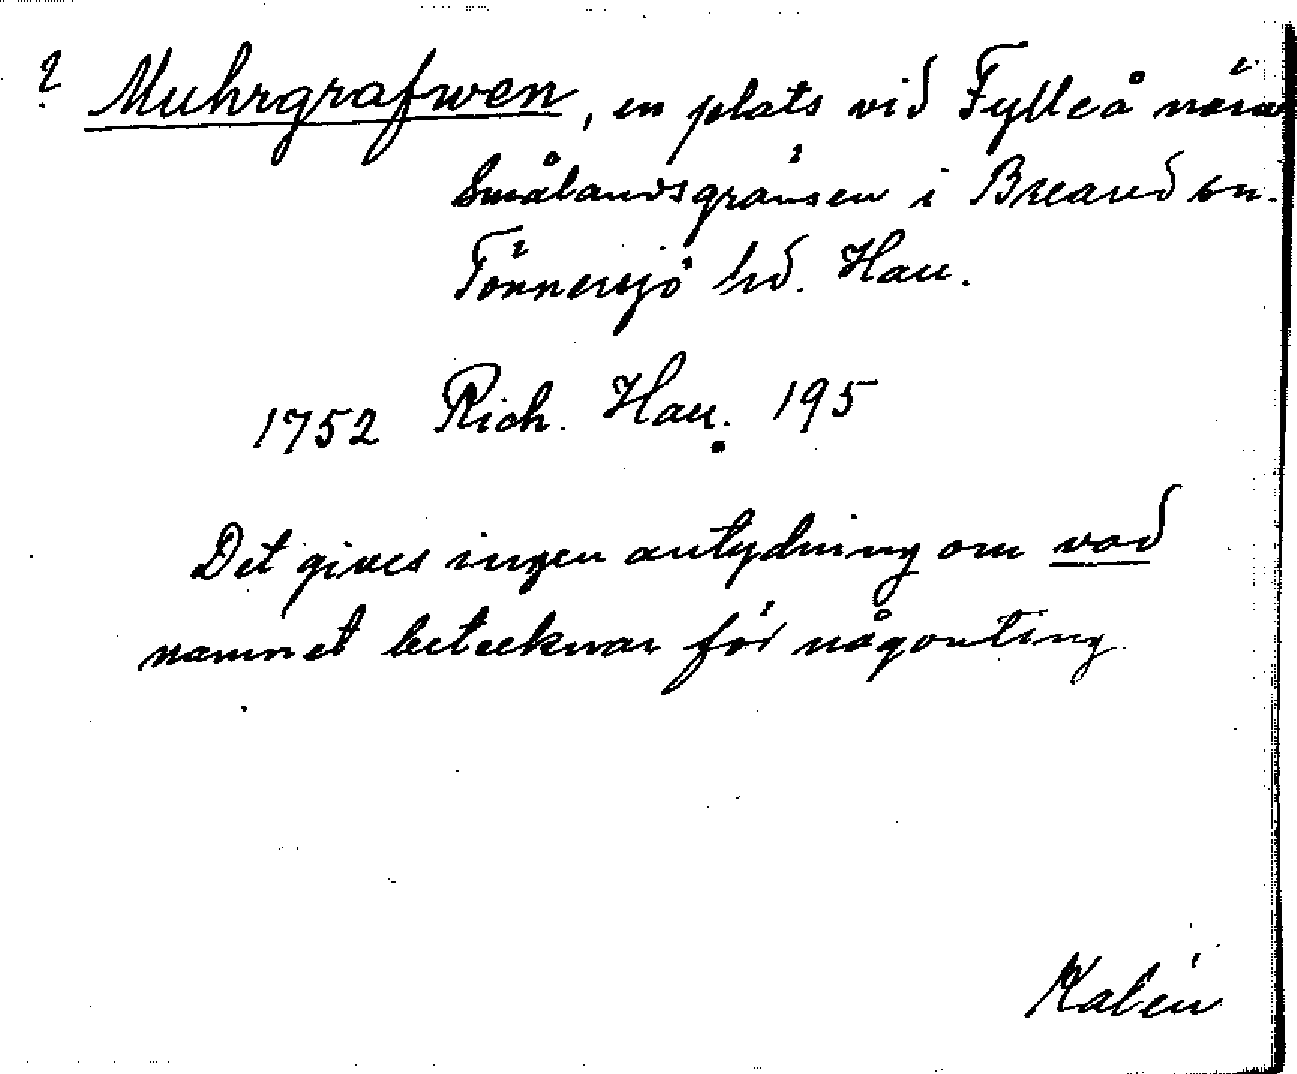 ? Muhrgrafwen, en plats vid Fylleå nära
Smålandsgränsen i Breared sn.
Tönnersjö hd. Hall.
1752 Rich. Hall. 195
Det gives ingen antydning om vad
namnet betecknar för någonting.
Kalén